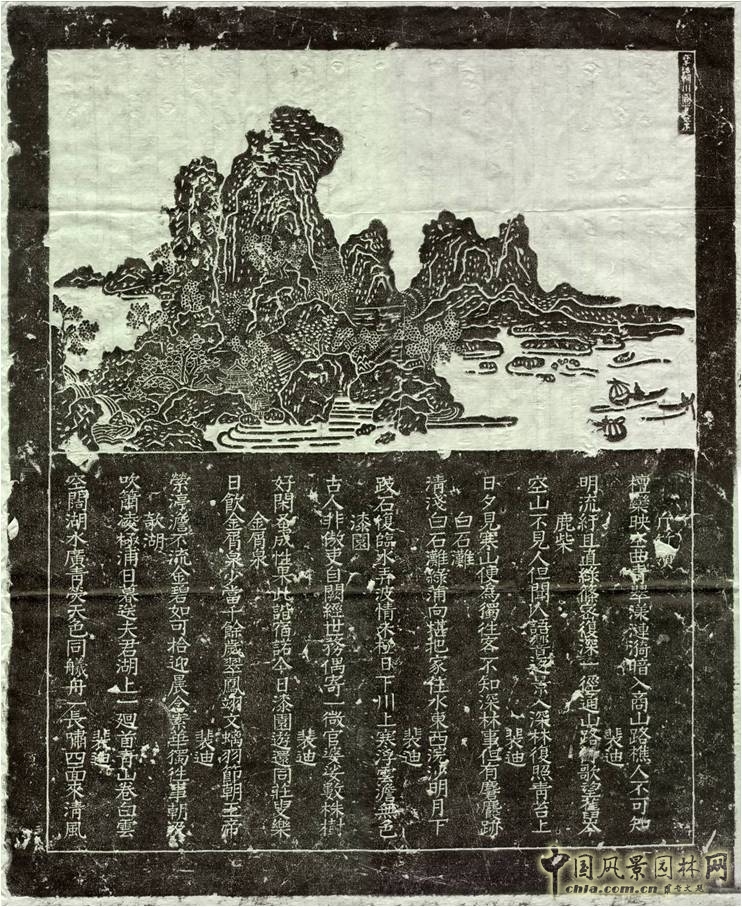 輞川圖
竹嶺
檀欒映空曲青翠漾漣漪暗入商山路樵人不可知
裴迪
明流紆且直綠篠密復深一徑通山路行歌望舊岑
鹿柴
空山不見人但聞人語響返景入深林復照青苔上
裴迪
日夕見寒山便為獨往客不知深林事但有麏麚跡
白石灘
清淺白石灘綠蒲向堪把家住水東西浣沙明月下
裴迪
跂石復臨水弄波情未極日下川上寒浮雲澹無色
漆園
古人非傲吏自闕經世務偶寄一微官婆娑數株樹
裴迪
好閑早成性果此諧宿諾今日漆園遊還同莊叟樂
金屑泉
日飲金屑泉少當千餘歲翠鳳翊文螭羽節朝玉帝
裴迪
縈渟澹不流金碧如可拾迎晨含素華獨往事朝汲
欹湖
吹簫凌極浦日暮送夫君湖上一廻首青山卷白雲
裴迪
空闊湖水廣青熒天色同艤舟一長嘯四面來清風
中国风景园林网
chla.com.cn